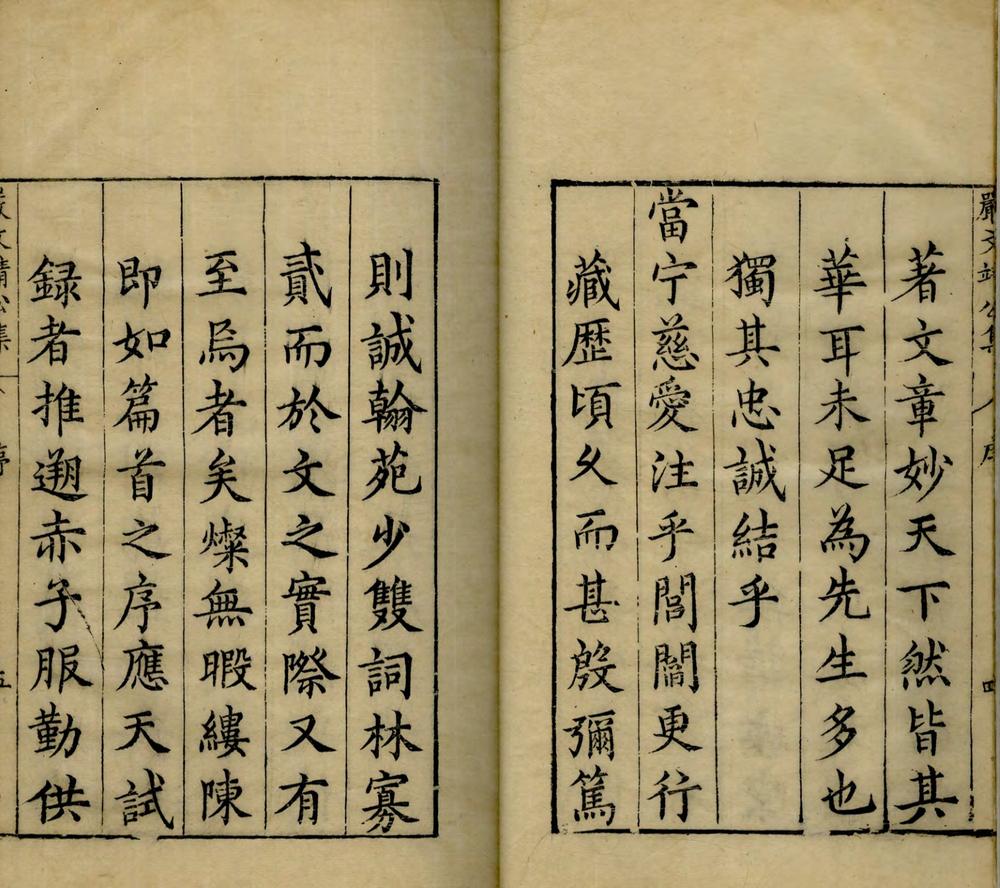 嚴文靖公集 序 四
著文章妙天下然皆其
華耳未足為先生多也
獨其忠誠結乎
當宁慈愛注乎閭閻更行
藏歷頃乆而甚殷彌篤
則誠翰苑少雙詞林寡
貳而於文之實際又有
至焉者矣燦無暇縷陳
即如篇首之序應天試
録者推遡赤子服勤供
嚴文靖公集 序 五